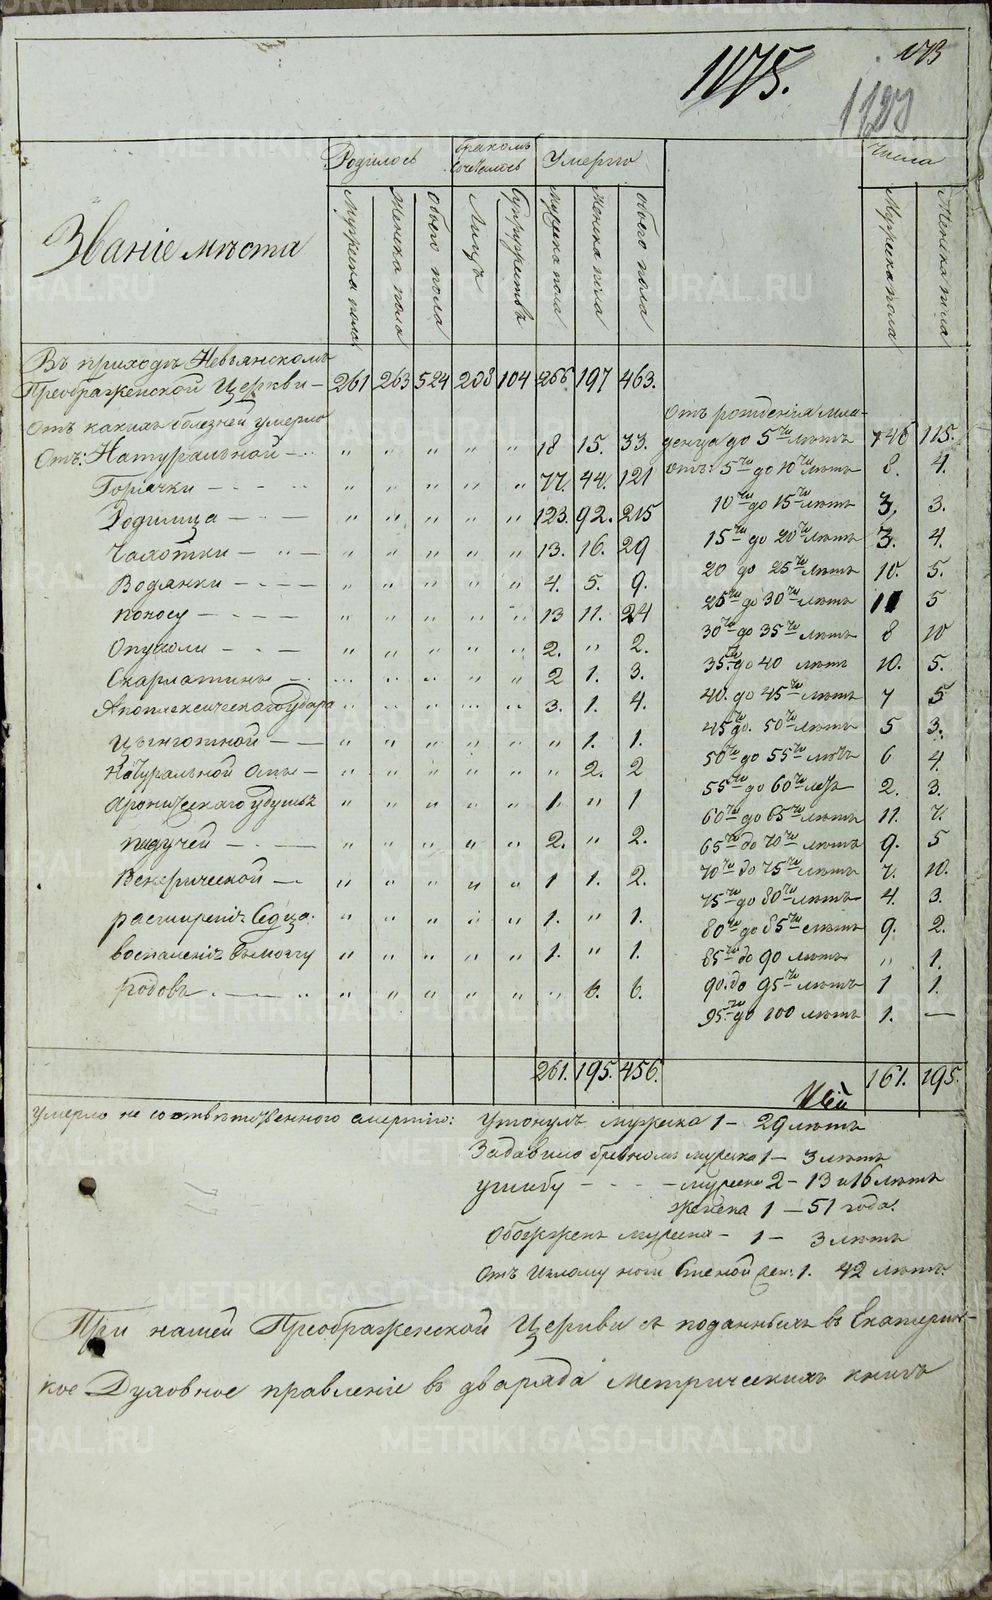 1175.
Родилось
бракомъ сочеталось
Умерло
Числа
Званіе мѣста
Мужеска пола
Женска пола
Обоего пола
Лицъ
Супружествъ
Мужеска пола
Женска пола
Обоего пола
Мужеска пола
Женска пола
Въ приходѣ Невьянскомъ
Преображенской Церкви — 261 263 524 208 104 266. 197 463.
Отъ какихъ болезней умерло
Отъ: Натуральной — " " " " " 18 15. 33.
Горячки — " " " " " 77. 44. 121
Родимца — " " " " " 123. 92. 215
Чахотки — " " " " " 13. 16. 29
Водянки — " " " " " 4. 5. 9.
поносу — " " " " " 13 11. 24
Опухоли — " " " " " 2. " 2.
Скарлатины — " " " " " 2 1. 3.
Апоплексическаго удара " " " " " 3. 1. 4.
Цынготной — " " " " " " 1. 1.
Натуральной оспы — " " " " " " 2. 2
" " " " " 1. " 1
падучей — " " " " " 2. " 2.
Венерической — " " " " " 1 1. 2.
расширенія Сердца. " " " " " 1. " 1.
воспаленія въ мозгу " " " " " 1. " 1.
родовъ — " " " " " " 6. 6.
261. 195. 456.
Отъ рожденія мла-
денца до 5ти лѣтъ 146 115.
отъ: 5ти до 10ти лѣтъ 8. 4.
10ти до 15ти лѣтъ 3. 3.
15ти до 20ти лѣтъ 3. 4.
20 до 25ти лѣтъ 10. 5.
25ти до 30ти лѣтъ 11 5
30ти до 35ти лѣтъ 8 10
35ти до 40 лѣтъ 10. 5.
40. до 45ти лѣтъ 7 5
45 до. 50ти лѣтъ 5 3.
50ти до 55ти лѣтъ 6 4.
55ти до 60ти лѣтъ 2. 3.
60ти до 65ти лѣтъ 11. 7.
65ти до 70ти лѣтъ 9. 5
70ти до 75ти лѣтъ 7. 10.
75ти до 80ти лѣтъ 4. 3.
80ти до 85ти лѣтъ 9. 2.
85ти до 90 лѣтъ " 1.
90. до 95ти лѣтъ 1 1.
95ти до 100 лѣтъ 1. —
161. 195.
Умерло не соотвѣтственного смертію: Утонулъ мужеска 1 — 29 лѣтъ
Задавило бревномъ мужеска 1 — 3 лѣтъ
угибу — мужеска 2 — 13 и 16 лѣтъ
женска 1 — 51 года.
Обожженъ мужеска — 1 — 3 лѣтъ
Отъ излому ноги жен: 1. 42 лѣтъ.
При нашей Преображенской Церкви и поданныхъ въ Екатеринс-
кое Духовное правленіе въ два ряда метрическихъ книгъ
METRIKI.GASO-URAL.RU